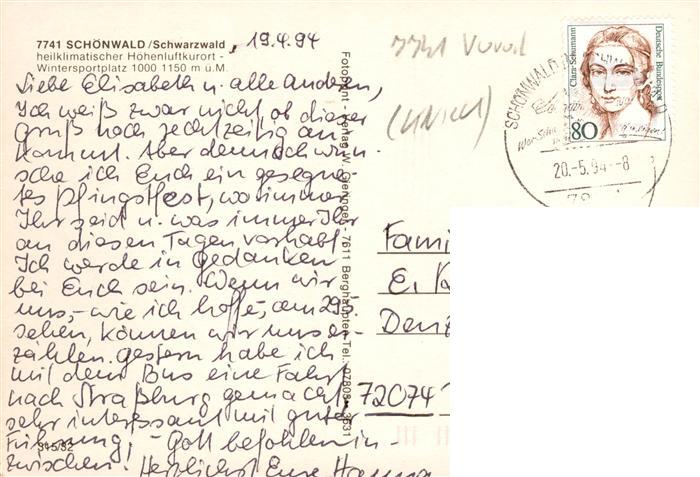 7741 SCHÖNWALD/Schwarzwald, 19.4.94
heilklimatischer Höhenluftkurort -
Wintersportplatz 1000 1150 m ü.M.
Liebe Elisabeth u. alle Anderen,
Ich weiß zwar nicht, ob dieser
Gruß noch rechtzeitig an
kommt. Aber dennoch wün-
sche ich Euch ein gesegne-
tes Pfingstfest, wo immer
Ihr seid u. was immer Ihr
an diesen Tagen vorhabt.
Ich werde in Gedanken
bei Euch sein. Wenn wir
uns, - wie ich hoffe, am 29.5.
sehen, können wir uns er-
zählen. Gestern habe ich
mit dem Bus eine Fahrt
nach Straßburg gemacht,
sehr interessant mit guter
Führung, - Gott befohlen in-
zwischen! Herzlichst Eure Hanna
315/32
Fotoprint - Verlag W. Gieringer - 7611 Berghaupten - Tel. 07803 - 3631
7741
Deutsche Bundespost
Clara Schumann
80
SCHÖNWALD
20.-5.94-8
78
Fami
E. K
Den
72074